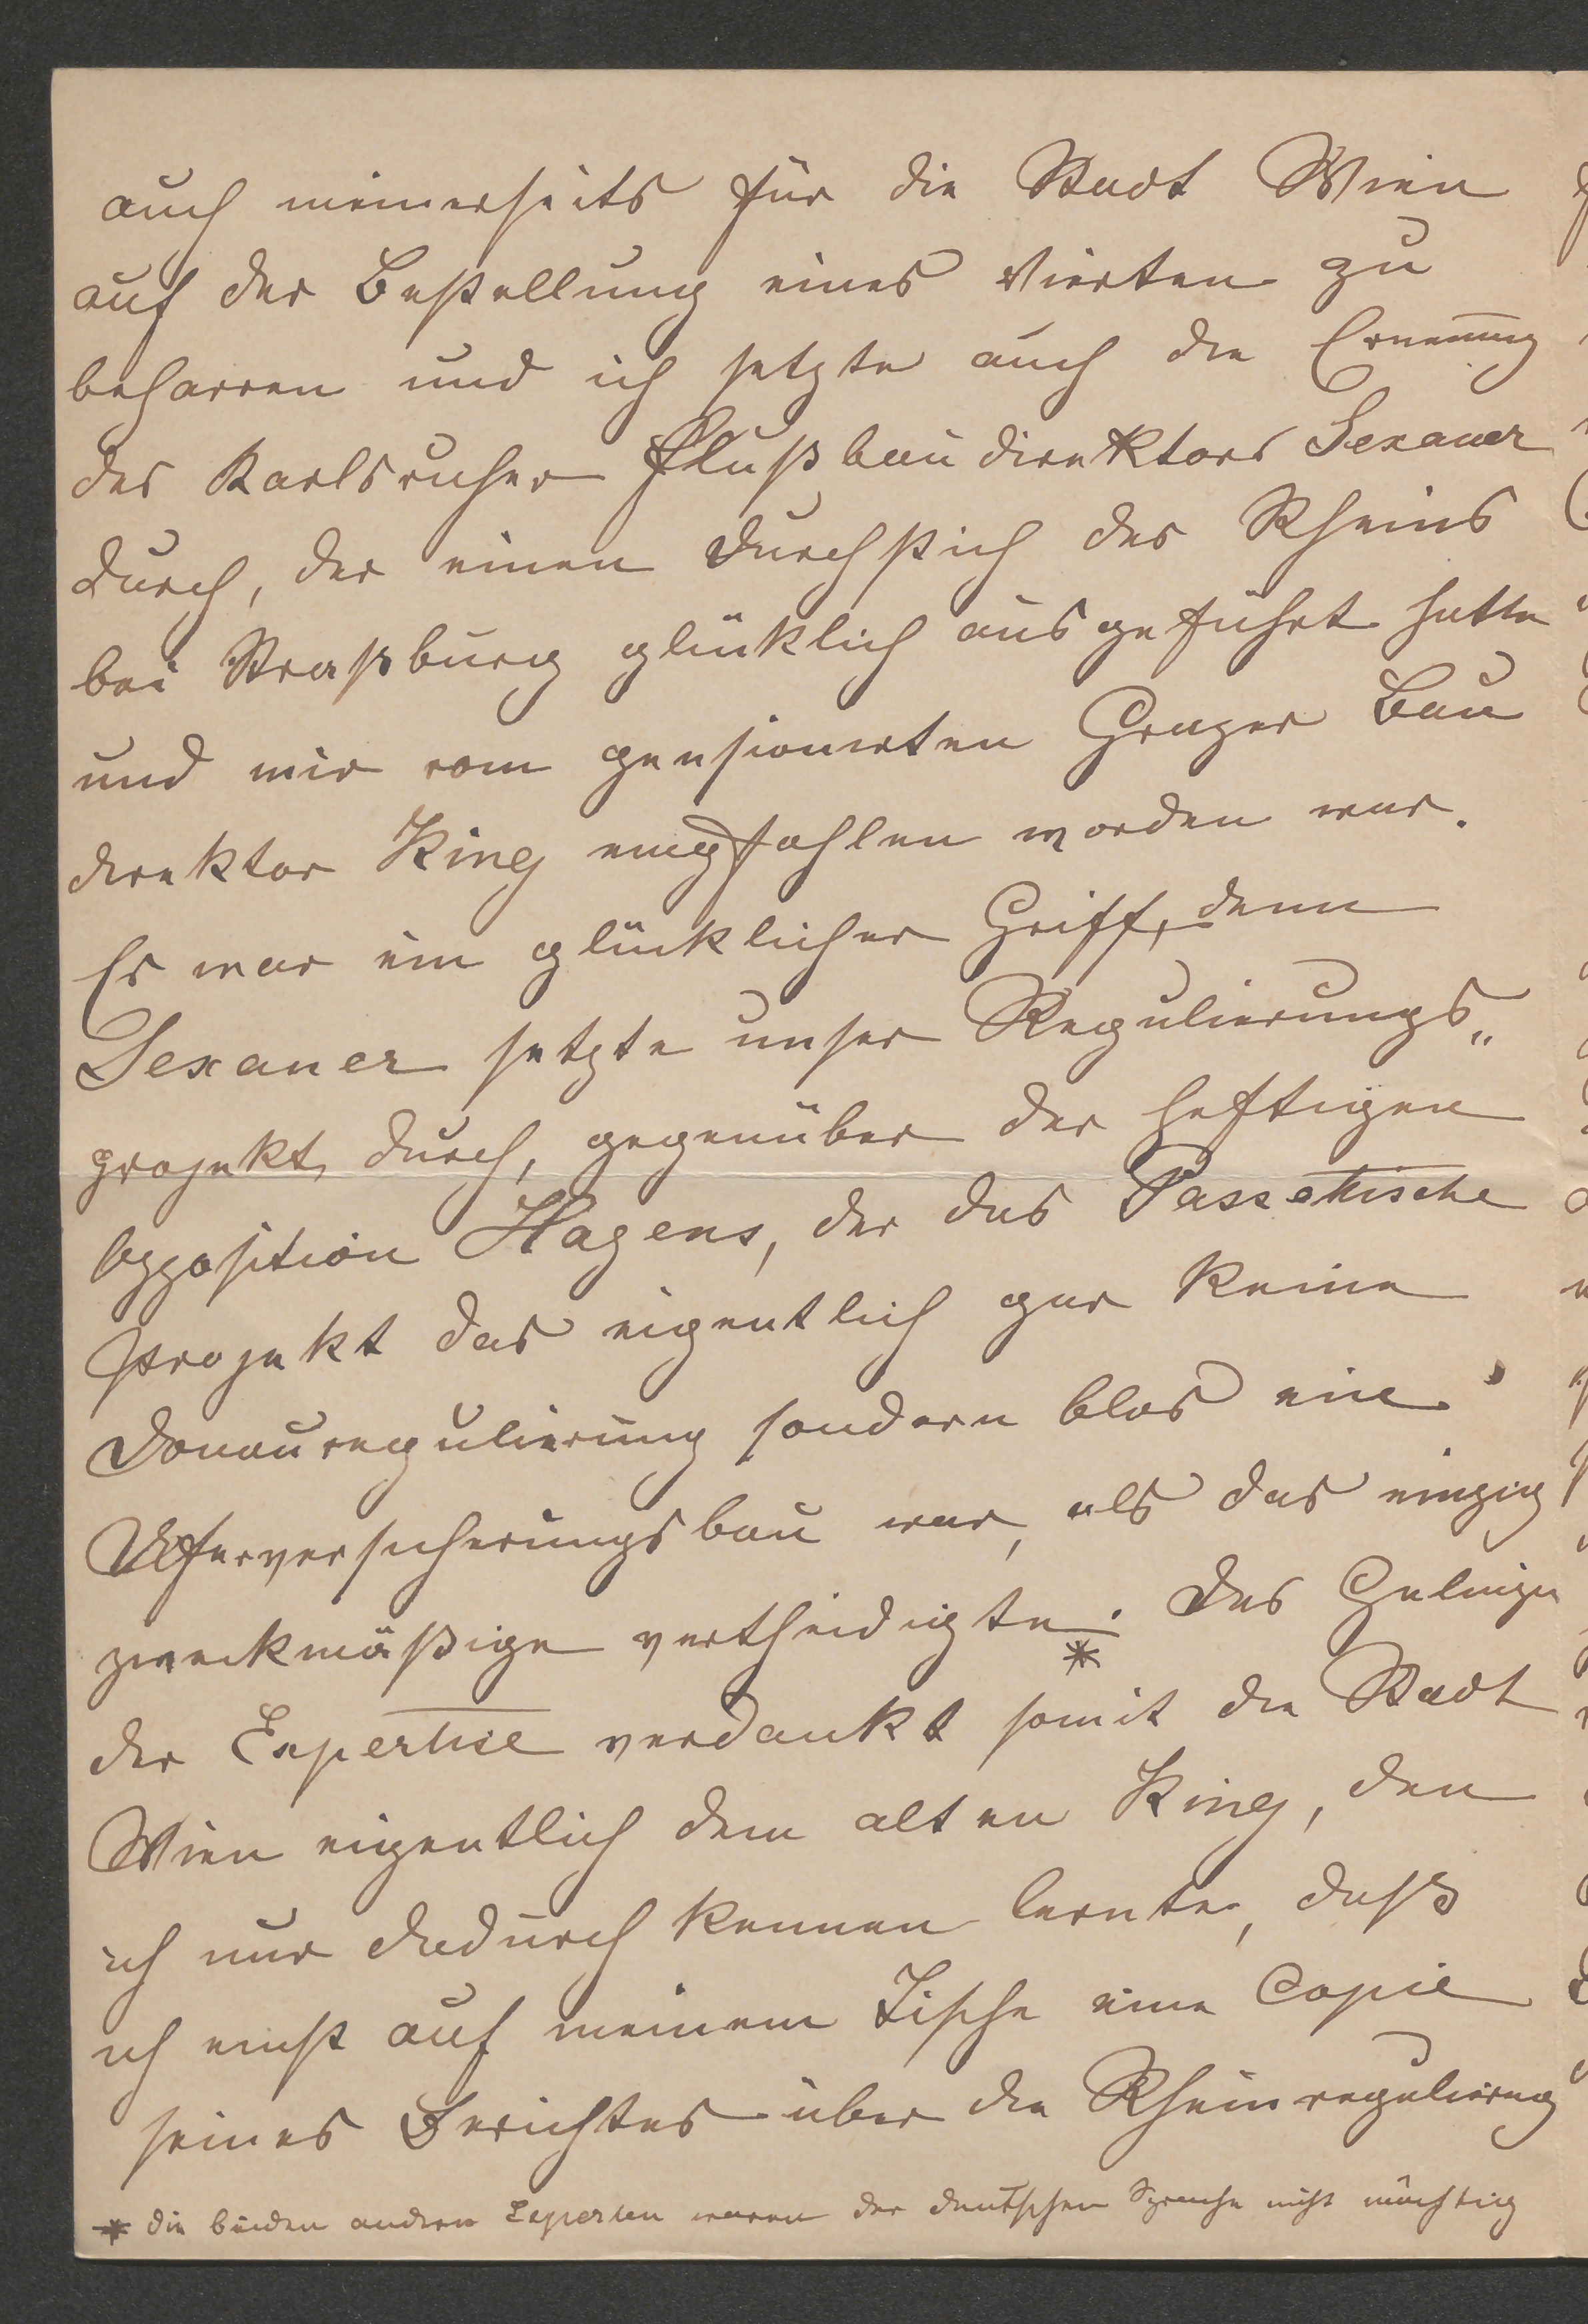 auch meinerseits für die Stadt Wien
auf der Bestellung eines Vierten zu
beharren und ich setzte auch die Ernennung
des Karlsruher Flußbaudirektors Sexauer
durch, der einen Durchstich des Rheins
bei Straßburg glücklich ausgeführt hatte
und mir vom pensionirten Grazer Bau
direktor King empfohlen worden war.
Es war ein glücklicher Griff, denn
Sexauer setzte unser Regulierungs„
projekt durch, gegenüber der heftigen
Opposition Hagens, der das Passettische
Projekt das eigentlich gar keine
Donauregulierung sondern blos ein
Uferversicherungsbau war, als das einzig
zweckmäßige vertheidigte.* Das Gelingen
der Expertise verdankt somit die Stadt
Wien eigentlich dem alten King, den
ich nur dadurch kennen lernte, daß
ich einst auf meinem Tische eine Copie
seines Berichtes über die Rheinregulierung
* die beiden andern Experten waren der deutschen Sprache nicht mächtig